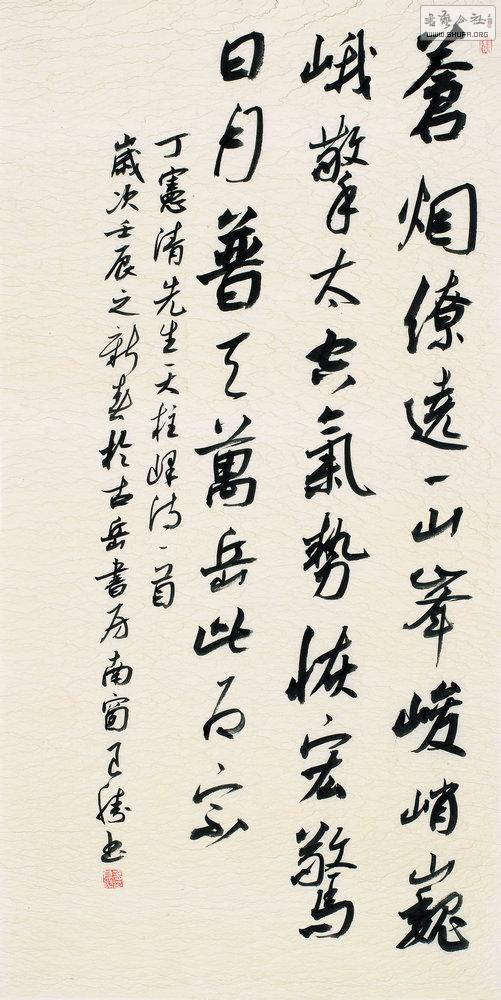 蒼烟缭遶一山峯峻峭巍
峨擎太空氣勢恢宏驚
日月普天萬岳此为宗
丁憲清先生天柱峰诗一首
歲次壬辰之新春於古岳書房南窗书
書藝公社
WWW.SHUFA.ORG